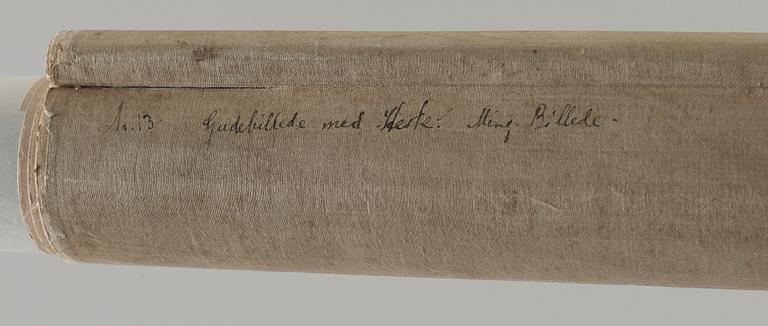 Nr. 13. Gudebillede med Heste. Ming. Billede.